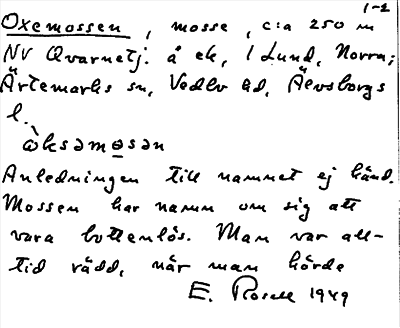 1-2
Oxemossen, mosse, c:a 250 m
NV Qvarnetj. å ek, 1 Lund, Norra;
Ärtemarks sn, Vedbo hd, Älvsborgs
l.
Anledningen till namnet ej känd.
Mossen har namn om sig att
vara bottenlös. Man var all-
tid rädd, när man hörde
E. Rosell 1949